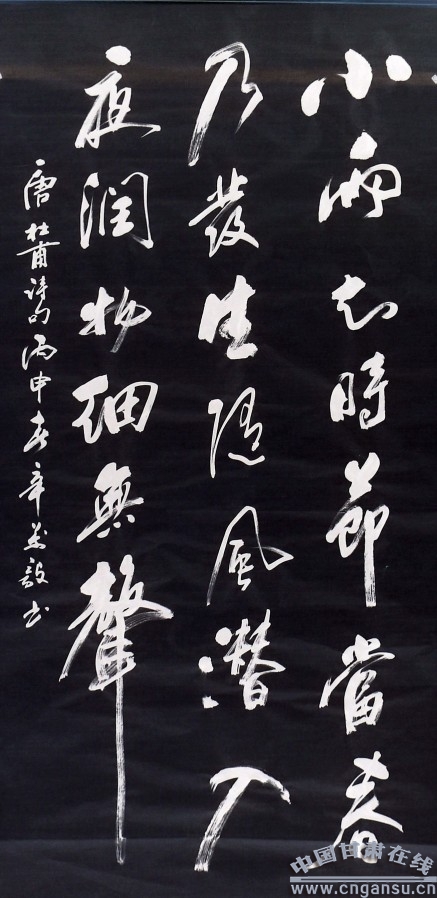 小雨知時節當春
乃發生隨風潛入
夜润物細無聲
唐杜甫诗句丙申春辛书
中国甘肃在线
www.cngansu.cn